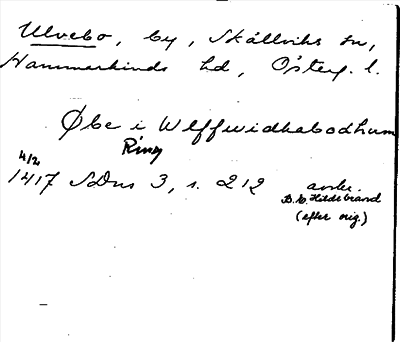 Ulvebo, by, Skällviks sn,
Hammarkinds hd, Österg. l.
Øbe i Wlffwidhabodhum
Ring
4/2
1417 SDns 3, s. 212
avskr.
B. E. Hildebrand
(efter orig.)